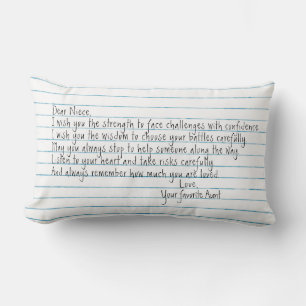 Dear Niece,
I wish you the strength to face challenges with confidence.
I wish you the wisdom to choose your battles carefully.
May you always stop to help someone along the way.
Listen to your heart and take risks carefully.
And always remember how much you are loved.
Love,
Your Favorite Aunt